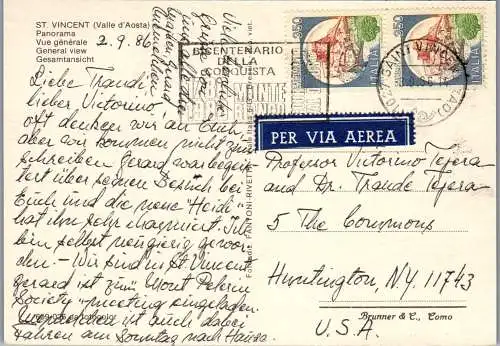 ST. VINCENT (Valle d'Aosta)
Panorama
Vue générale
General view
Gesamtansicht
2.9.86
Liebe Traude
lieber Victorino,
oft denken wir an Euch,
aber wir kommen nicht zum
schreiben. Gerard war begeis-
tert über seinen Besuch bei
Euch und die neue "Heidi"
hat ihn sehr charmiert. Ich
bin selbst neugierig gewor-
den. - Wir sind in St. Vincent
Gerard ist zum Mont Pelerin
Society - meeting eingeladen.
ist auch dabei
fahren am Sonntag nach Hause.
Viele
BICENTENARIO
DELLA
CONQUISTA
350
ITALIA
350
ITALIA
PER VIA AEREA
Professor Victorino Tejera
and Dr. Traude Tejera
5 The Commons
Huntington, N.Y. 11743
U.S.A.
Brunner & C., Como